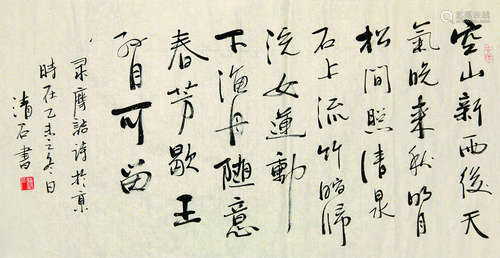 空山新雨後天
氣晚来秋明月
松間照清泉
石上流竹喧歸
浣女蓮動
下漁舟随意
春芳歇王
孫自可留
录摩詰詩於京
時在乙未之冬日
清石書